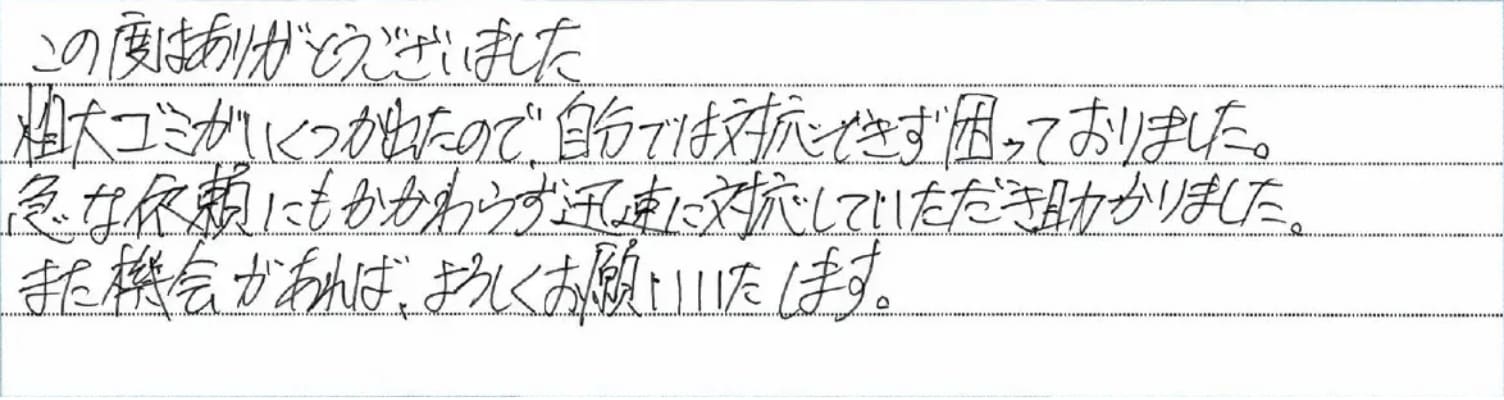 この度はありがとうございました
粗大ゴミがいくつか出たので、自分では対応できず困っておりました。
急な依頼にもかかわらず迅速に対応していただき助かりました。
また機会があれば、よろしくお願いいたします。